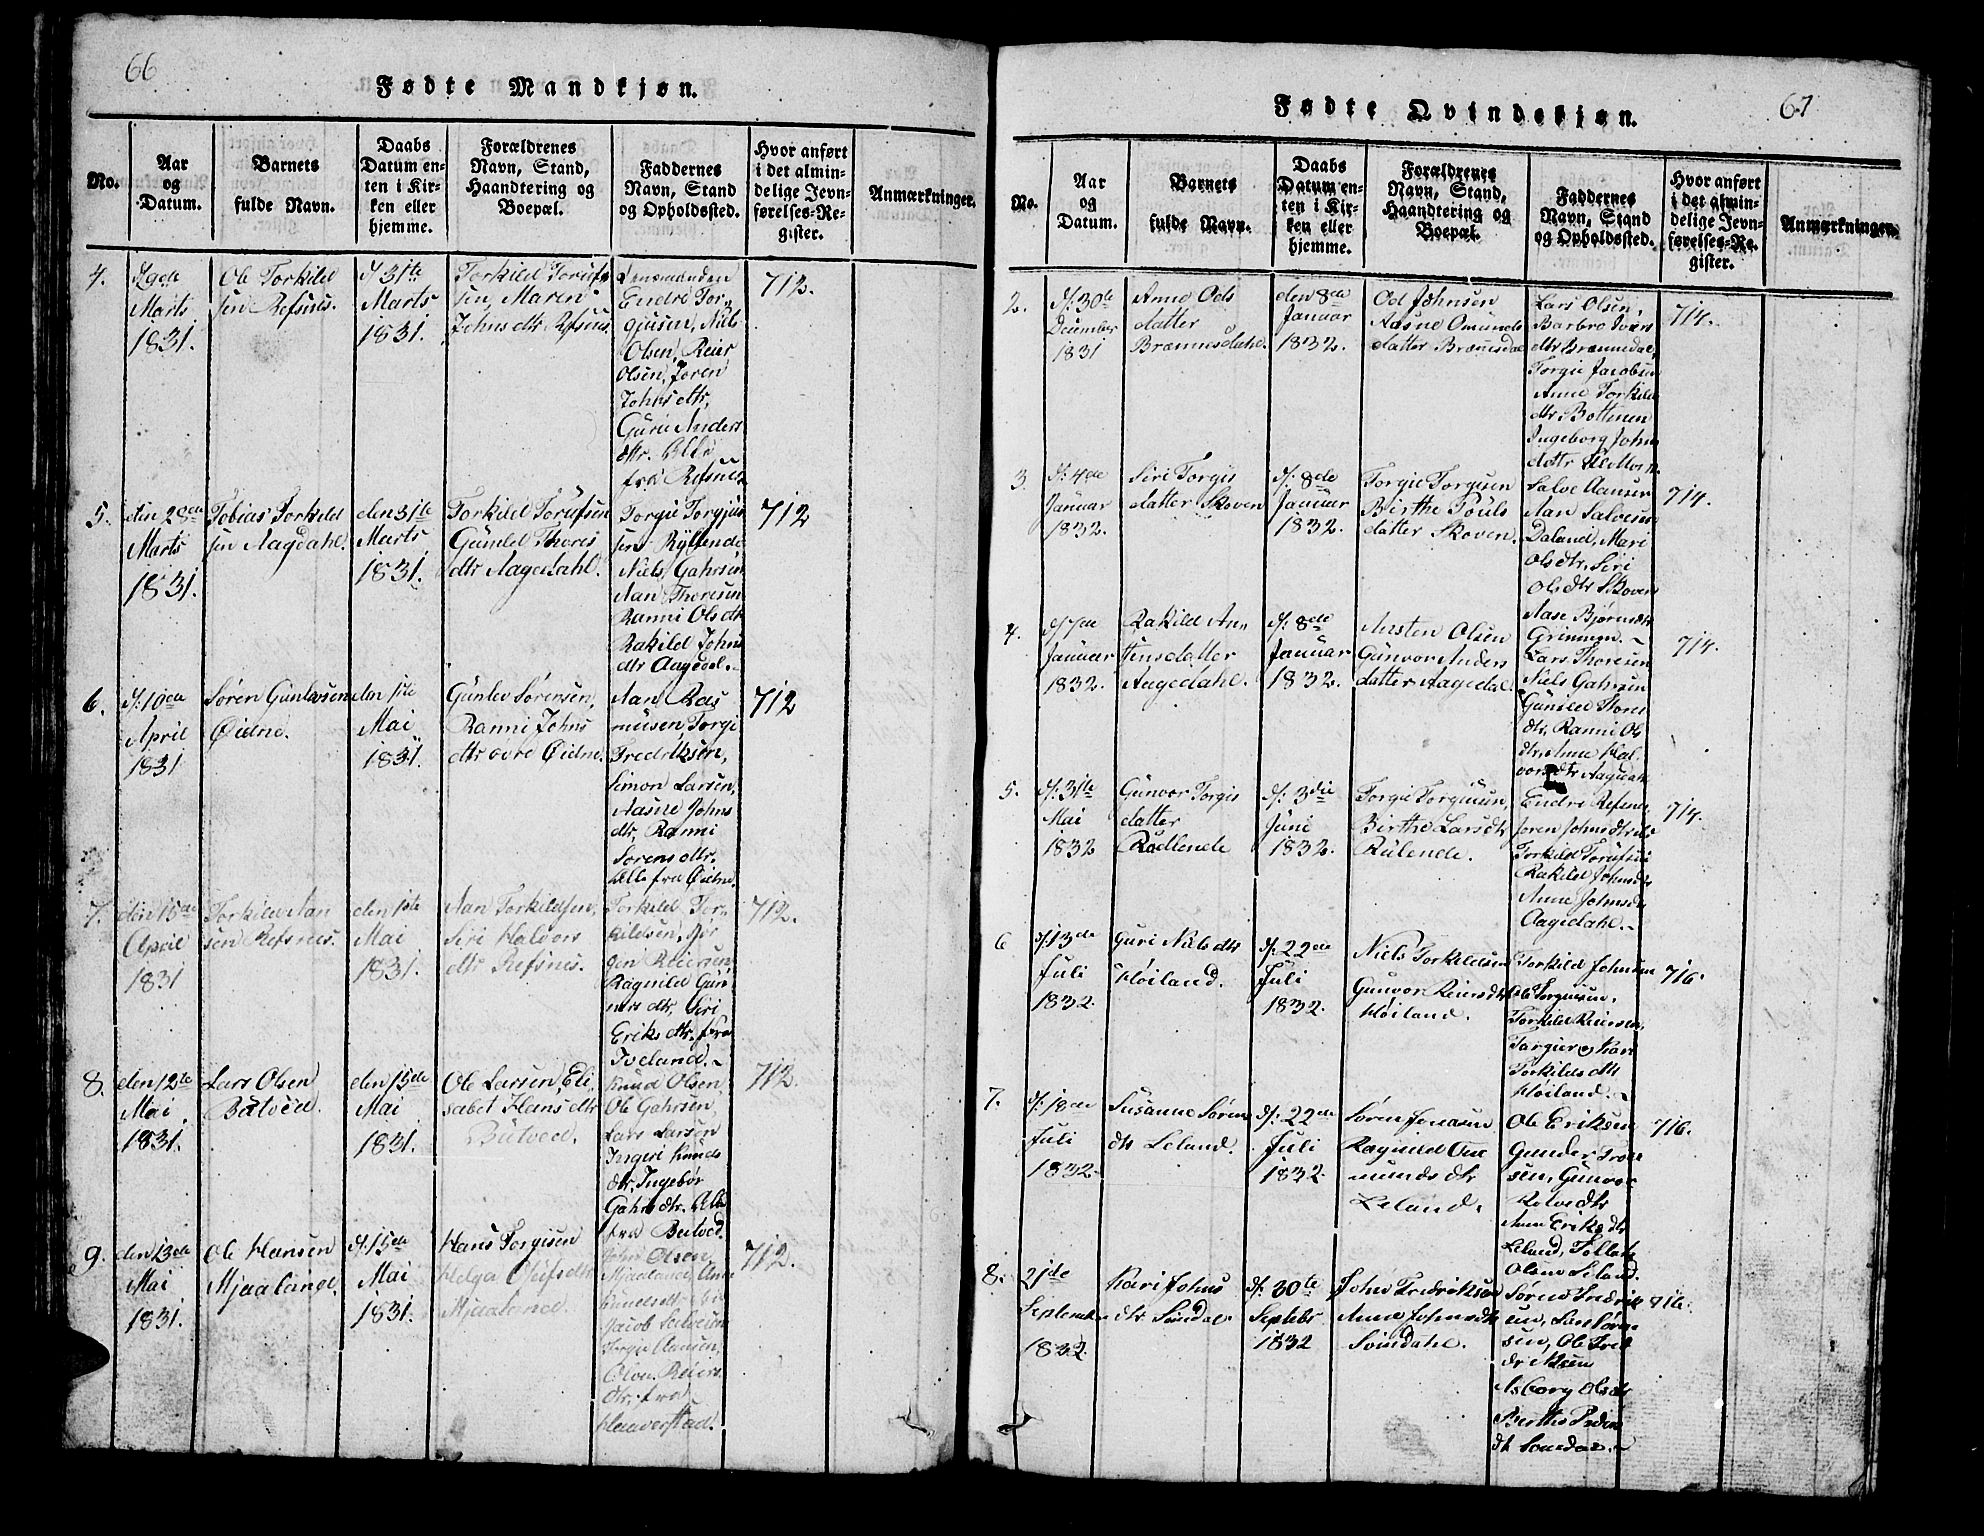 66
Fødte Mandkjøn.
No.
Aar
og
Datum.
Barnets
fulde Navn.
Daabs
Datum en-
ten i Kir-
ken eller
hjemme.
Forældrenes
Navn, Stand,
Haandtering og
Boepæl.
Faddernes
Navn, Stand
og Opholdssted.
Hvor anført
i det almin-
delige Jevn-
førelses-Re-
gister.
Anmærkninger.
4.
Marts
1831.
Ole Torkild
sen Refsnes.
d. 31te
Marts
1831.
Torkild Torufs
sen, Maren
Johns dtr Refsnes
Endre Tor-
gjusen, Niels
Olsen, Reier
Olsen, Joren
Johns dtr,
Guri Anders
dtr. Alle
fra Refsnes
712.
5.
den 20de
Marts
1831.
Tobias Torkild
sen Aagdahl.
den 31te
Marts
1831.
Torkild Torufsen
Gunild Thores
dtr Aagedahl.
Torgie Torgjus
sen Rylende
Niels Gahrsen
Aan Thoresen
Ranni Ols dtr
Rakild Johns
dtr Aagedal.
712
6.
d. 10de
April
1831
Søren Gunlevsen
Øidne.
den 1ste
Mai
1831.
Gunlev Sørensen,
Ranni Johns
dtr øvre Øidne.
Aan Ras
musen, Torgi
Fredriksen,
Simon Larsen,
Aasne Johns
dtr, Ranni
Sørens dtr.
Alle fra Øidne.
712
7.
den 15de
April
1831
Torkild Aan
sen Refsnes.
den 1ste
Mai
1831.
Aan Torkildsen,
Siri Halvors
dtr Refsnes.
Torkild Tor-
kildsen, Jør
gen Reiersen,
Ragnild Gun
ners dtr, Siri
Eriks dtr. fra
Iveland.
712.
8.
den 12te
Mai
1831.
Lars Olsen
Butved.
den 15de
Mai
1831.
Ole Larsen, Eli
sabet Hans dtr
Butved.
Knud Olsen
Ole Gahrsen,
Lars Larsen
Ingeri Knuds
dtr, Ingebor
Gahrs dtr, Alle
fra Butved.
712.
9.
den 13de
Mai
1831.
Ole Hansen
Mjaaland.
d. 15de
Mai
1831.
Hans Torgisen
Helga Olufs dtr
Mjaaland.
John Olsen,
Mjaaland, Ane
Jacob Salvesen
Torgie Aansen,
Olou Reiers
dtr. fra
Haaverstad.
712.
67
Fødte Qvindekjøn.
No.
Aar
og
Datum.
Barnets
fulde Navn.
Daabs
Datum en-
ten i Kir-
ken eller
hjemme.
Forældrenes
Navn, Stand,
Haandtering og
Boepæl.
Faddernes
Navn, Stand
og Opholdssted.
Hvor anført
i det almin-
delige Jevn-
førelses-Re-
gister.
Anmærkninger.
2.
d. 30te
December
1831
Anne Ods
datter
Brænnesdahl.
den 8de
Januar
1832.
Od Johnsen
Aasne Omunds
datter Brænnesdal
Lars Olsen,
Barbro Ivers
dtr Brænnedal,
Torgie Jacobsen
Anne Torkild
dtr Bottnen
Ingeborg Johns
714.
3.
d. 4de
Januar
1832.
Siri Torgis
datter Skoven
d. 8de
Januar
1832.
Torgie Torgisen
Birthe Pouls
datter Skoven.
Salve Aansen
Aan Salvesen
Daland, Mari
Ols dtr, Siri
Ols dtr Skoven
Aase Bjørns dtr
714.
4.
d. 7de
Januar
1832.
Rakild An-
stens datter
Aagedahl.
d. 8de
Januar
1832.
Ansten Olsen
Gunvor Anders
datter Aagedal.
Lars Thoresen
Niels Gahrsen
Gunild Thores
dtr, Ranni Ols
dtr, Anne Hal
vors dtr Aagedal
714.
5.
d. 31te
Mai
1832
Gunvor Torgis
datter
d. 3die
Juni
1832.
Torgie Torgiusen,
Birthe Lars dtr
Rulende.
Endre Refsnes
Joren Johns dtr
Torkild Torufsen
Rakild Johns dtr
Anne Johns dtr
Aagedahl.
714.
6
d. 13de
Juli
1832.
Guri Niels dtr
Høiland.
d. 22de
Juli
1832.
Niels Torkildsen
Gunvor Reiers dtr
Høiland.
Torkild Johnsen
Ole Torgiusen,
Torkild Reiersen,
Targier og Kari
Torkilds dtr
Høiland.
716.
7.
d. 18de
Juli
1832.
Susanne Søren
dtr Leland.
d. 22de
Juli
1832
Søren Jonasen
Ragnild Om
munds dtr
Leland.
Ole Eriksen
Gunder Tron
sen, Gunvor
Rolve dtr
Anne Eriks dtr
Leland, Tollak
Olsen Leland.
716.
8.
21de
September
1832.
Kari Johns
dtr Sondal
d. 30te
Septebr
1832
John Fredriksen
Anne Johns dtr
Søndahl.
Sørend Fredrik
sen, Lars Jørgen-
sen, Ole Fred
driksen
Asborg Ols dtr
716.